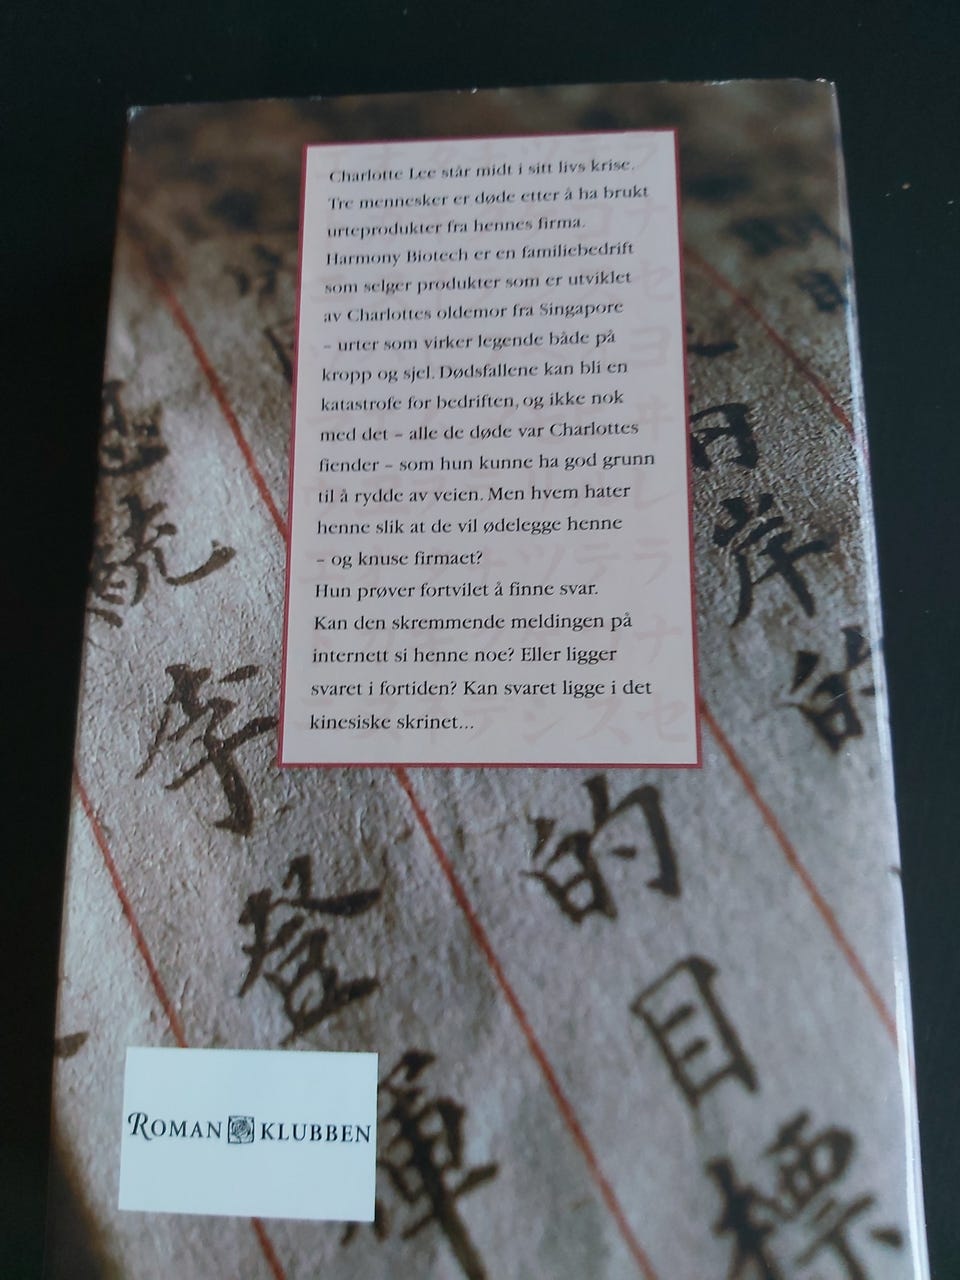 Charlotte Lee står midt i sitt livs krise.
Tre mennesker er døde etter å ha brukt
urteprodukter fra hennes firma.
Harmony Biotech er en familiebedrift
som selger produkter som er utviklet
av Charlottes oldemor fra Singapore
– urter som virker legende både på
kropp og sjel. Dødsfallene kan bli en
katastrofe for bedriften, og ikke nok
med det – alle de døde var Charlottes
fiender – som hun kunne ha god grunn
til å rydde av veien. Men hvem hater
henne slik at de vil ødelegge henne
– og knuse firmaet?
Hun prøver fortvilet å finne svar.
Kan den skremmende meldingen på
internett si henne noe? Eller ligger
svaret i fortiden? Kan svaret ligge i det
kinesiske skrinet...
岸的
的目標
登陸
ROMAN KLUBBEN